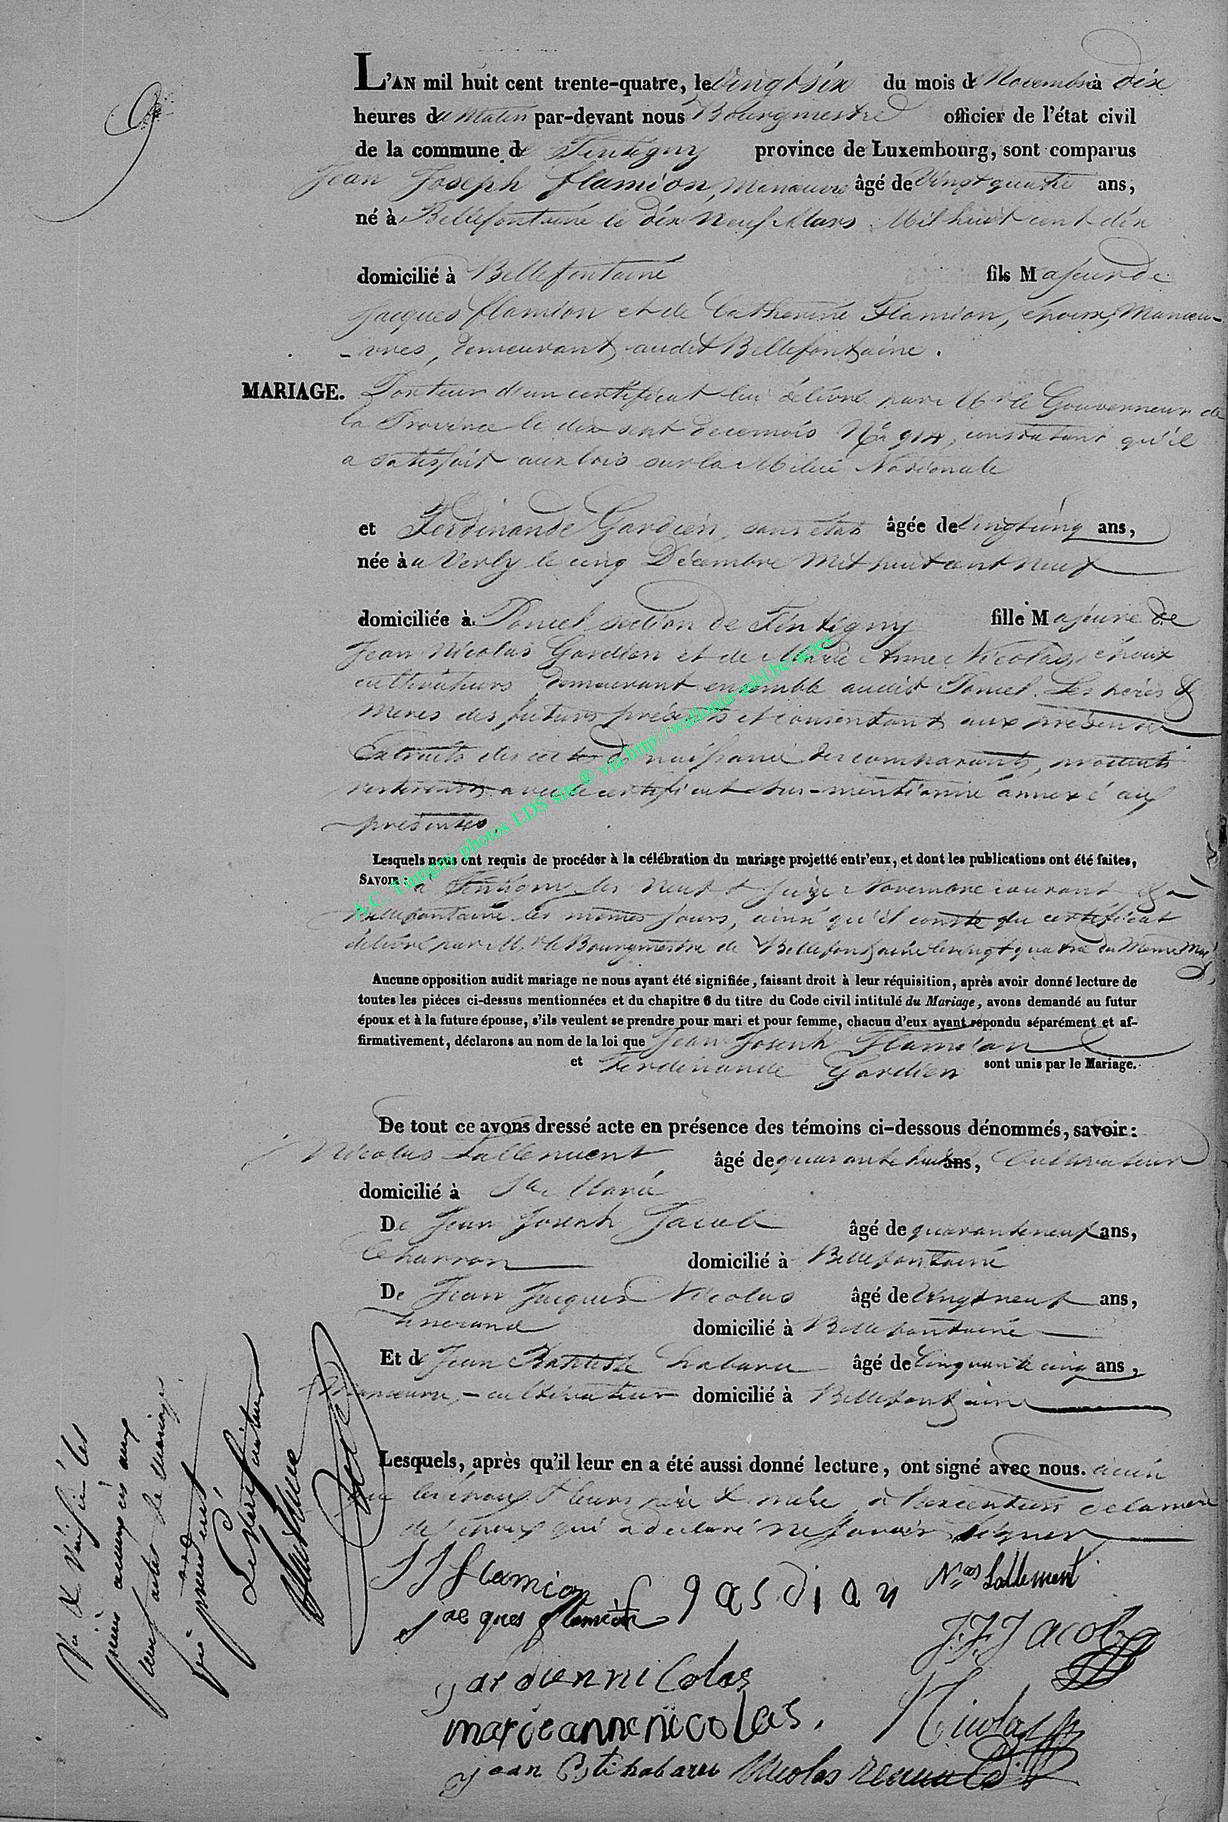 9
L'AN mil huit cent trente-quatre, le vingt six du mois de Novembre à dix
heures du Matin par-devant nous Bourgmestre officier de l'état civil
de la commune de Tintigny province de Luxembourg, sont comparus
Jean Joseph flamion, Manœuvre âgé de vingt quatre ans,
né à Bellefontaine le dix neuf Mars Mil huit cent dix
domicilié à Bellefontaine fils Majeur de
Jacques flamion et de Catherine Flamion, époux, Manœu-
-vres, demeurant audit Bellefontaine.
MARIAGE. Porteur d'un certificat lui délivré par Mr le Gouverneur de
la Province le dix sept de ce mois No 914, constatant qu'il
a satisfait aux lois sur la Milice Nationale
et Ferdinande Gardien, sans état âgée de vingt cinq ans,
née à a Verly le cinq Décembre Mil huit cent Neuf
domiciliée à Poncel section de Tintigny fille Majeure de
Jean Nicolas Gardien et de Marie Anne Nicolas, époux
cultivateurs demeurant ensemble audit Poncel. Les pères &
Mères des futurs présents et consentant aux présentes
Extraits des actes de naissance des comparants,
avec le certificat sus-mentionné annexé aux
présentes.
Lesquels nous ont requis de procéder à la célébration du mariage projetté entr'eux, et dont les publications ont été faites,
SAVOIR: à Tintigny les Neuf & Seize Novembre courant & à
Bellefontaine les mêmes jours, ainsi qu'il conste du certificat
délivré par Mr le Bourgmestre de Bellefontaine le vingt quatre du Même Mois,
Aucune opposition audit mariage ne nous ayant été signifiée, faisant droit à leur réquisition, après avoir donné lecture de
toutes les pièces ci-dessus mentionnées et du chapitre 6 du titre du Code civil intitulé du Mariage, avons demandé au futur
époux et à la future épouse, s'ils veulent se prendre pour mari et pour femme, chacun d'eux ayant répondu séparément et af-
firmativement, déclarons au nom de la loi que Jean Joseph Flamion
et Ferdinande Gardien sont unis par le Mariage.
De tout ce avons dressé acte en présence des témoins ci-dessous dénommés, savoir:
Nicolas Lallement âgé de quarante huit ans, Cultivateur
domicilié à Ste Marie
De Jean Joseph Jacob âgé de quarante neuf ans,
Charron domicilié à Bellefontaine
De Jean Jacques Nicolas âgé de vingt neuf ans,
domicilié à Bellefontaine
Et de Jean Baptiste habaru âgé de Cinquante cinq ans,
Manœuvre,-cultivateur domicilié à Bellefontaine
Lesquels, après qu'il leur en a été aussi donné lecture, ont signé avec nous. ainsi
que les époux & leurs père & mère, à l'exception de la mère
de l'époux qui a déclaré ne savoir signer
J J flamion
f gasdian
Nas Lallement
jacques flamion
J. J. Jacob
gardien nicolas
marie anne nicolas.
Nicolas
jean Bte habaru Nicolas
Vu & Vérifié les
pièces annexées aux
neuf actes de mariage
qui précèdent
A.C. Tintigny photos LDS site® via http://wallonia-asbl.be/actes